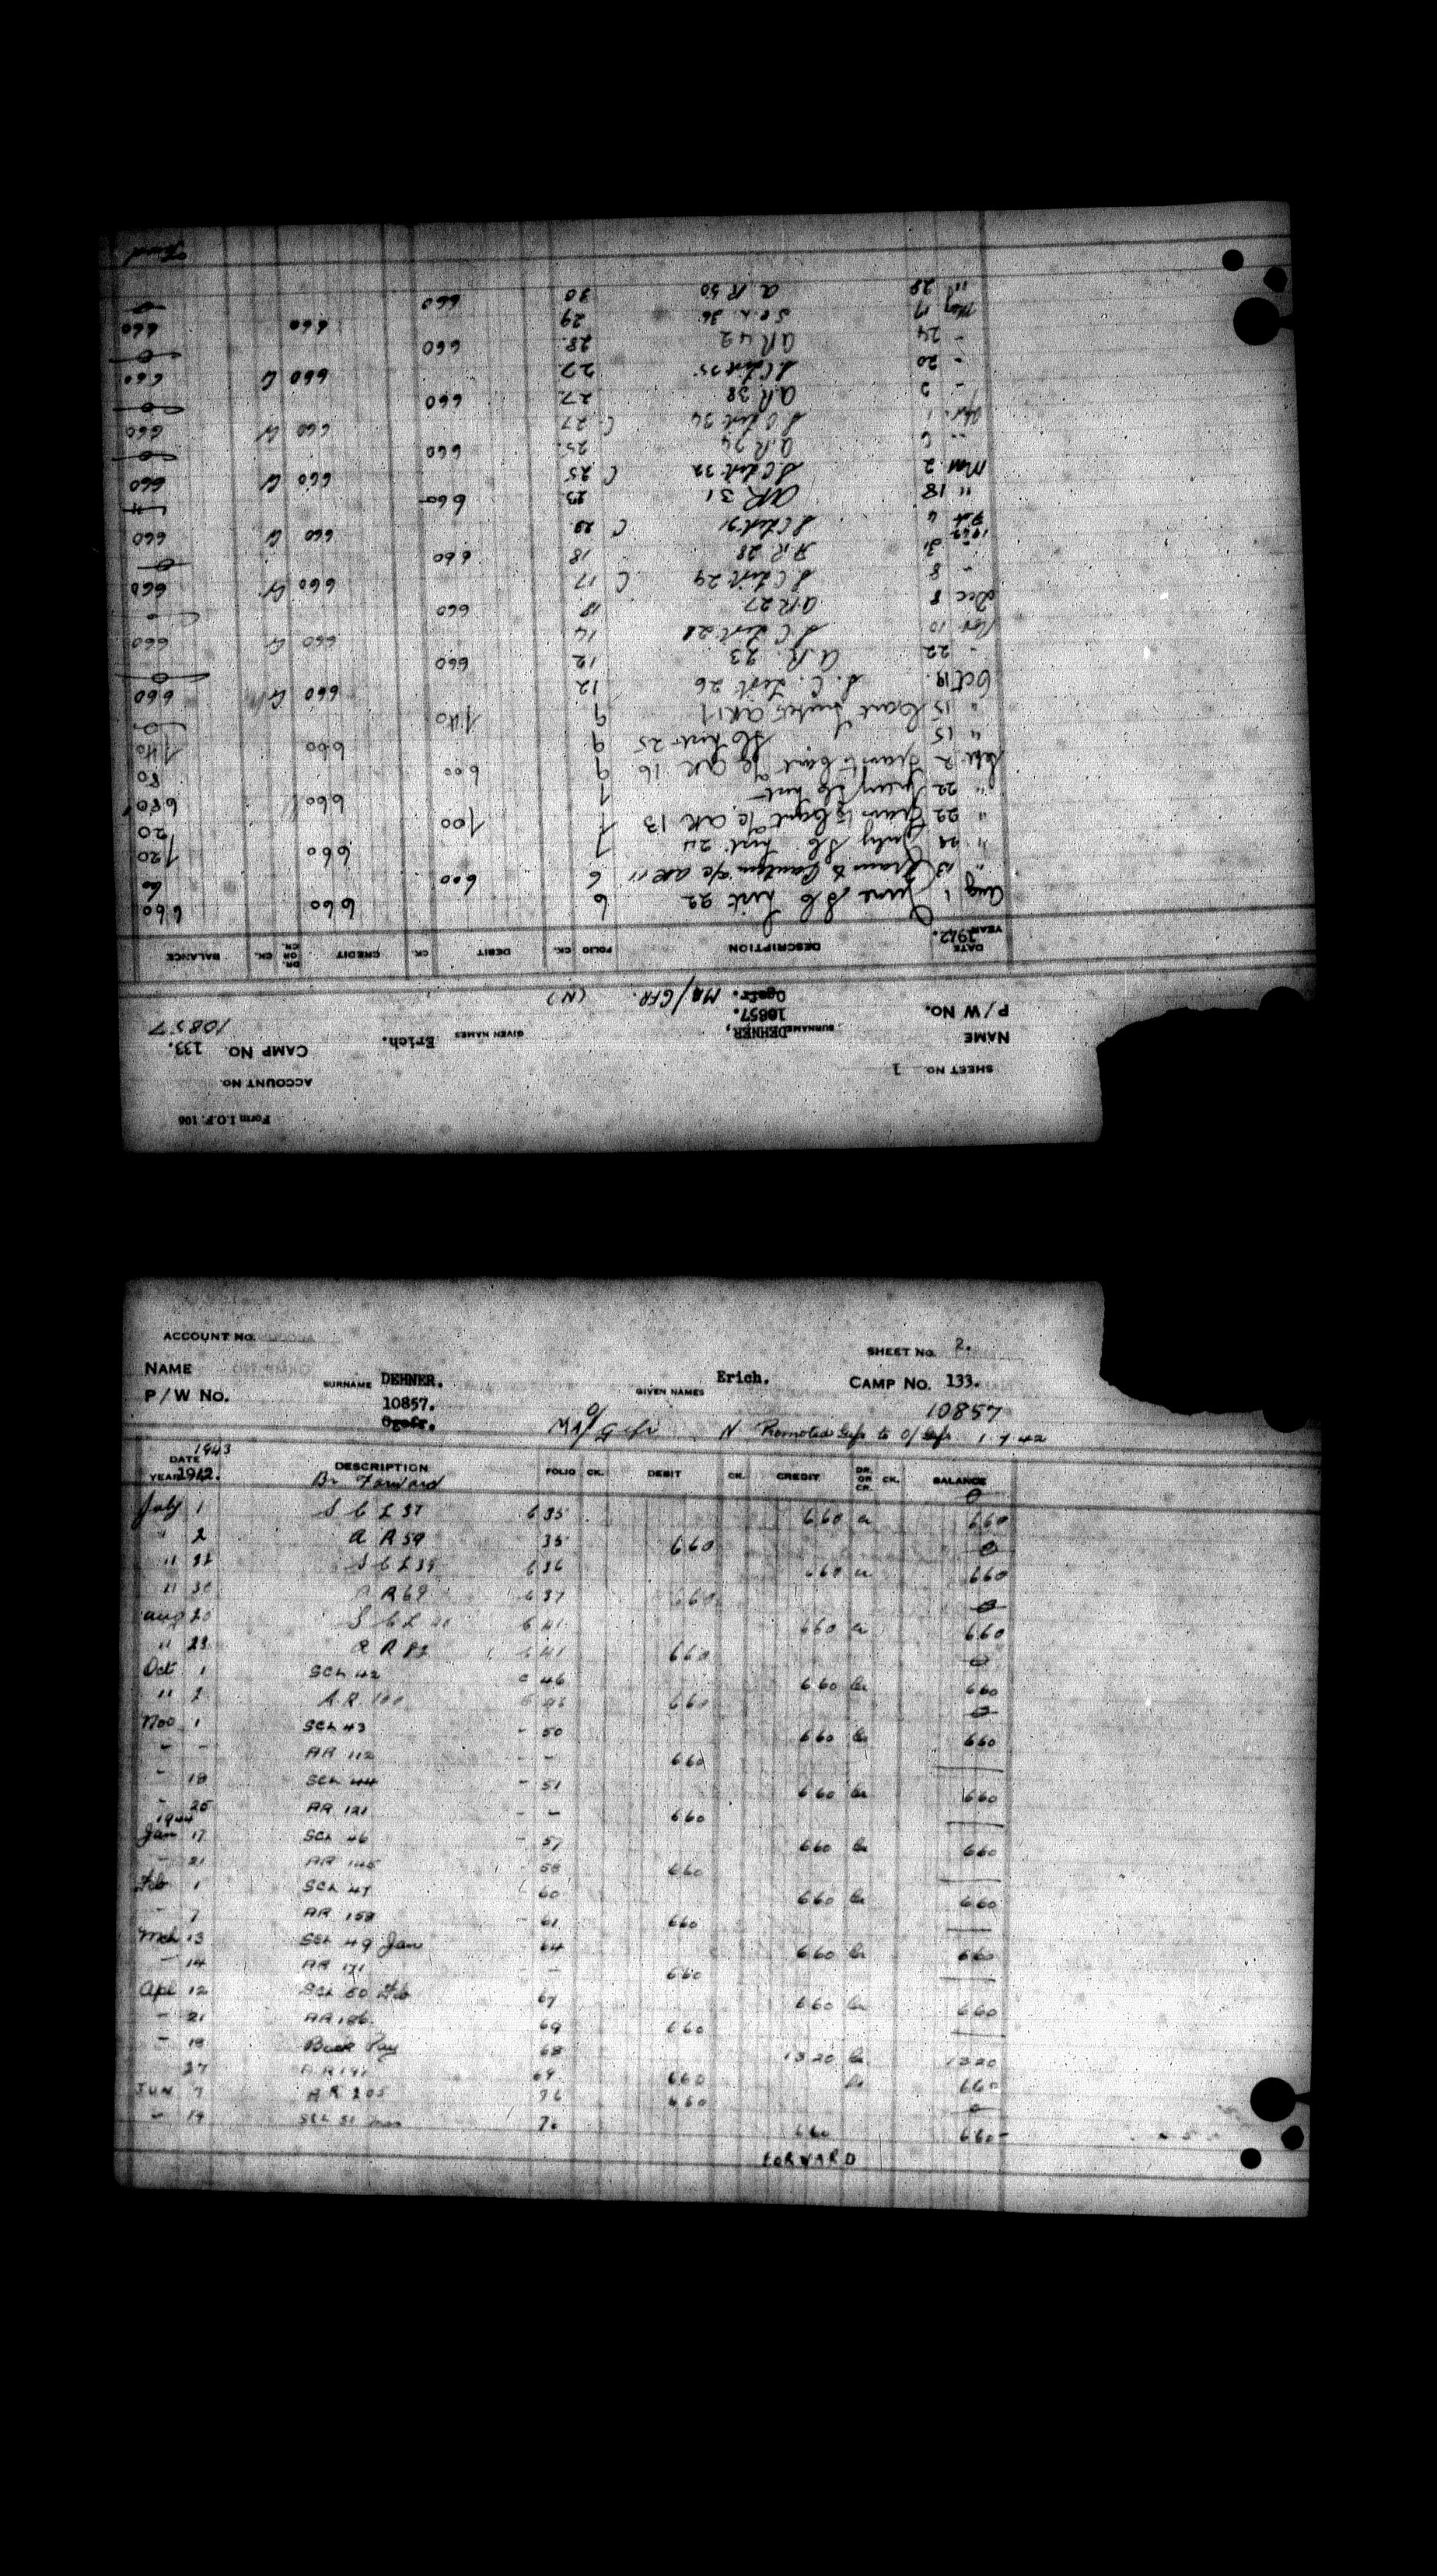 Form I.O.F. 106
ACCOUNT NO.
SHEET NO. 1
CAMP NO. 133.
NAME SURNAME DEHNER, GIVEN NAMES Erich.
10857
P/W NO. 10857.
Ogefr. MA/GFR. (N)
DATE YEAR 1942. DESCRIPTION FOLIO CK. DEBIT CK. CREDIT DR. OR CR. CK. BALANCE
Aug 1 June SC List 22 6 660 660
" 13 Trans to Canteen a/c AR 11 6 600 60
" 22 July SC List 24 7 660 720
" 22 Trans to Cant a/c AR 13 7 700 20
" 22 SC List 7 660 680
Sept 2 Trans to Cant a/c AR 16 9 600 80
" 15 SC List 25 9 660 740
" 15 Cant AR 17 9 740 0
Oct 19 S.C. List 26 12 660 Cr 660
- 22 A.R. 23 12 660 0
Nov 10 S C List 28 14 660 Cr 660
Dec 8 AR 27 18 660 -
- 8 S C List 29 C 17 660 Cr 660
- 31 A.R. 28 18 660 0
1943
Feb 4 S C List 31 C 23 660 Cr 660
" 18 AR 31 23 660
Mar 2 S C List 32 C 25 660 Cr 660
" 6 A.R. 34 25 660 0
Apr. 1 S C List 34 C 27 660 Cr 660
- 2 A.R. 38 27 660 0
- 20 S.C List 35 27 660 Cr 660
- 24 AR 42 28 660 0
May 17 S C L 36 29 660 660
" 29 A R 50 30 660 0
Forward
ACCOUNT NO.
SHEET NO. 2.
NAME SURNAME DEHNER. GIVEN NAMES Erich. CAMP NO. 133.
P/W NO. 10857. 10857
Ogefr. MA/O/Gefr N Promoted Gefr to O/Gefr 1.7.42
1943
DATE YEAR 1942. DESCRIPTION FOLIO CK. DEBIT CK. CREDIT DR. OR CR. CK. BALANCE
Br Forward 0
July 1 S C L 37 C 35 660 Cr 660
" 2 A R 59 35 660 0
" S C L 39 C 36 660 Cr 660
" 30 A R 69 C 37 660 0
Aug 20 S C L C 41 660 Cr 660
" 23 A R C 41 660 0
Oct 1 SCL 42 C 46 660 Cr 660
" 2 A.R. 100 C 46 660 0
Nov 1 SCL 43 - 50 660 Cr 660
- - AR 112 - - 660
- 18 SCL 44 - 51 660 Cr 660
- 25 AR 121 - - 660
1944
Jan 17 SCL 46 - 57 660 Cr 660
- 21 AR 145 - 58 660
Feb 1 SCL 47 60 660 Cr 660
- 7 AR 153 - 61 660
Mch 13 SCL 49 Jan - 64 660 Cr 660
- 14 AR 171 - - 660
Apl 12 SCL 50 Feb 67 660 Cr 660
- 21 AR 186 69 660
- 19 Back Pay 68 1320 Cr 1320
27 AR 191 69 660 Cr 660
JUN 7 AR 205 76 660 0
- 19 SCL 51 660 660
FORWARD